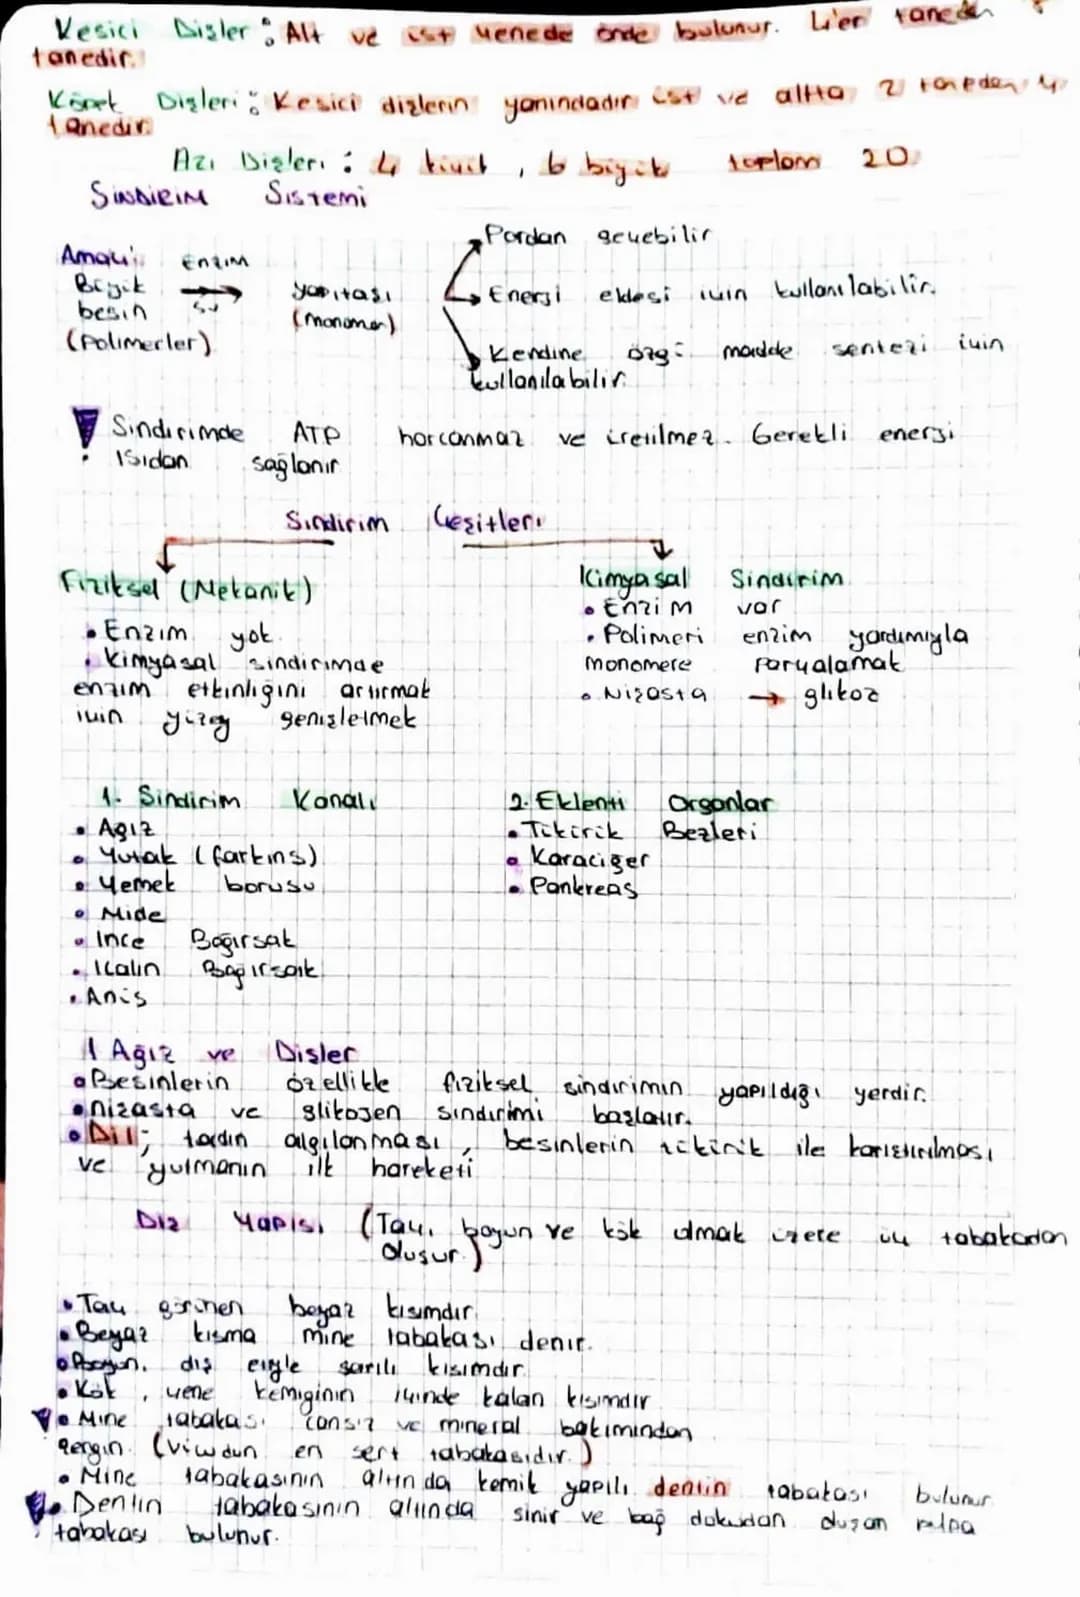 Kesici Dişler: Alt ve üst çenede önde bulunur. 4'er taneden 8
tanedir.
Köpek Dişleri: Kesici dişlerin yanındadır üst ve altta 2 taneden 4
tanedir.
Azı Dişleri: 4 küçük, 6 büyük toplam 20
SİNDİRİM SİSTEMİ
Amaç:
Büyük besin (Polimerler)
Enzim
su
yapıtaşı
(monomer)
Pordan geçebilir
Enerji eldesi için kullanılabilir.
Kendine özgü madde sentezi için
kullanılabilir.
! Sindirimde ATP harcanmaz ve üretilmez. Gerekli enerji
ısıdan sağlanır
Sindirim Çeşitleri
Fiziksel (Mekanik)
• Enzim yok.
• Kimyasal sindirimde
enzim etkinliğini artırmak
için yüzey genişletmek
Kimyasal Sindirim
• Enzim var
• Polimeri enzim yardımıyla
monomere parçalamak
• Nişasta → glikoz
1. Sindirim Kanalı
• Ağız
• Yutak (farkins)
• Yemek borusu
• Mide
• İnce Bağırsak
• Kalın Bağırsak
• Anüs
2. Eklenti Organlar
• Tükürük Bezleri
• Karaciğer
• Pankreas
1 Ağız ve Dişler
• Besinlerin özellikle fiziksel sindirimin yapıldığı yerdir.
• nişasta ve glikojen sindirimi başlatır.
• Dil; tadın algılanması, besinlerin tükürük ile karıştırılması
ve yutmanın ilk hareketi
Diş Yapısı (Taç, boyun ve kök olmak üzere üç tabakadan
oluşur.)
• Taç görünen beyaz kısımdır.
• Beyaz kısma mine tabakası denir.
• Boyun, diş etiyle sarılı kısımdır.
• Kök, çene kemiğinin içinde kalan kısımdır
! • Mine tabakası cansız ve mineral bakımından
zengin. (Vücudun en sert tabakasıdır.)
• Mine tabakasının altında kemik yapılı dentin tabakası bulunur
! • Dentin tabakasının altında sinir ve bağ dokudan oluşan pulpa
tabakası bulunur.